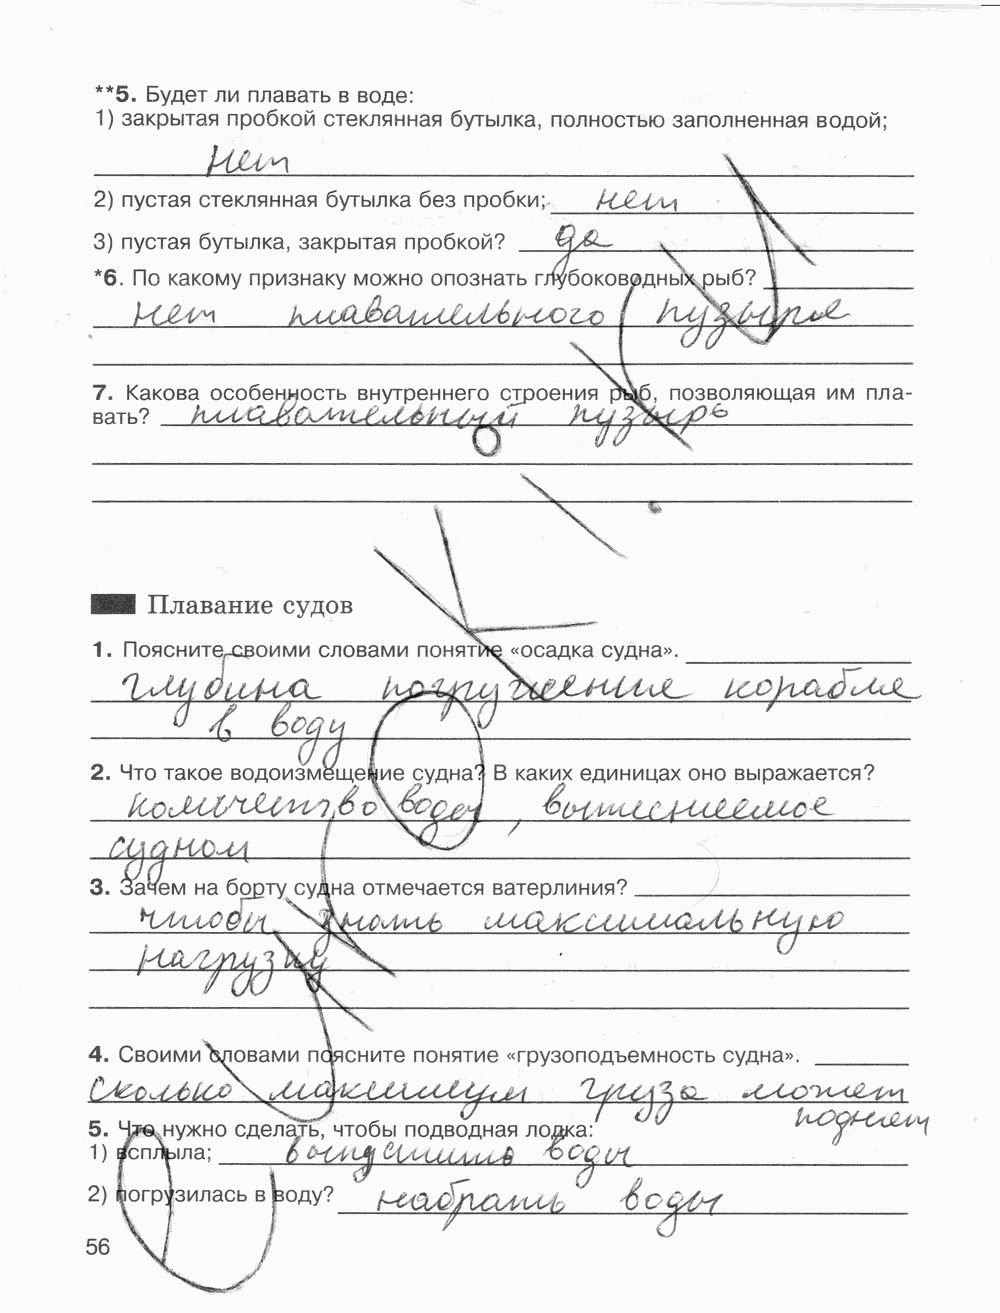 **5. Будет ли плавать в воде:
1) закрытая пробкой стеклянная бутылка, полностью заполненная водой;
нет
2) пустая стеклянная бутылка без пробки; нет
3) пустая бутылка, закрытая пробкой? да
*6. По какому признаку можно опознать глубоководных рыб?
нет плавательного пузыря
7. Какова особенность внутреннего строения рыб, позволяющая им пла-
вать? плавательный пузырь
Плавание судов
1. Поясните своими словами понятие «осадка судна».
глубина погружения корабля
в воду
2. Что такое водоизмещение судна? В каких единицах оно выражается?
количество воды, вытесняемое
судном
3. Зачем на борту судна отмечается ватерлиния?
чтобы знать максимальную
нагрузку
4. Своими словами поясните понятие «грузоподъемность судна».
сколько максимум груза может
поднят
5. Что нужно сделать, чтобы подводная лодка:
1) всплыла; выпустить воды
2) погрузилась в воду? набрать воды
56